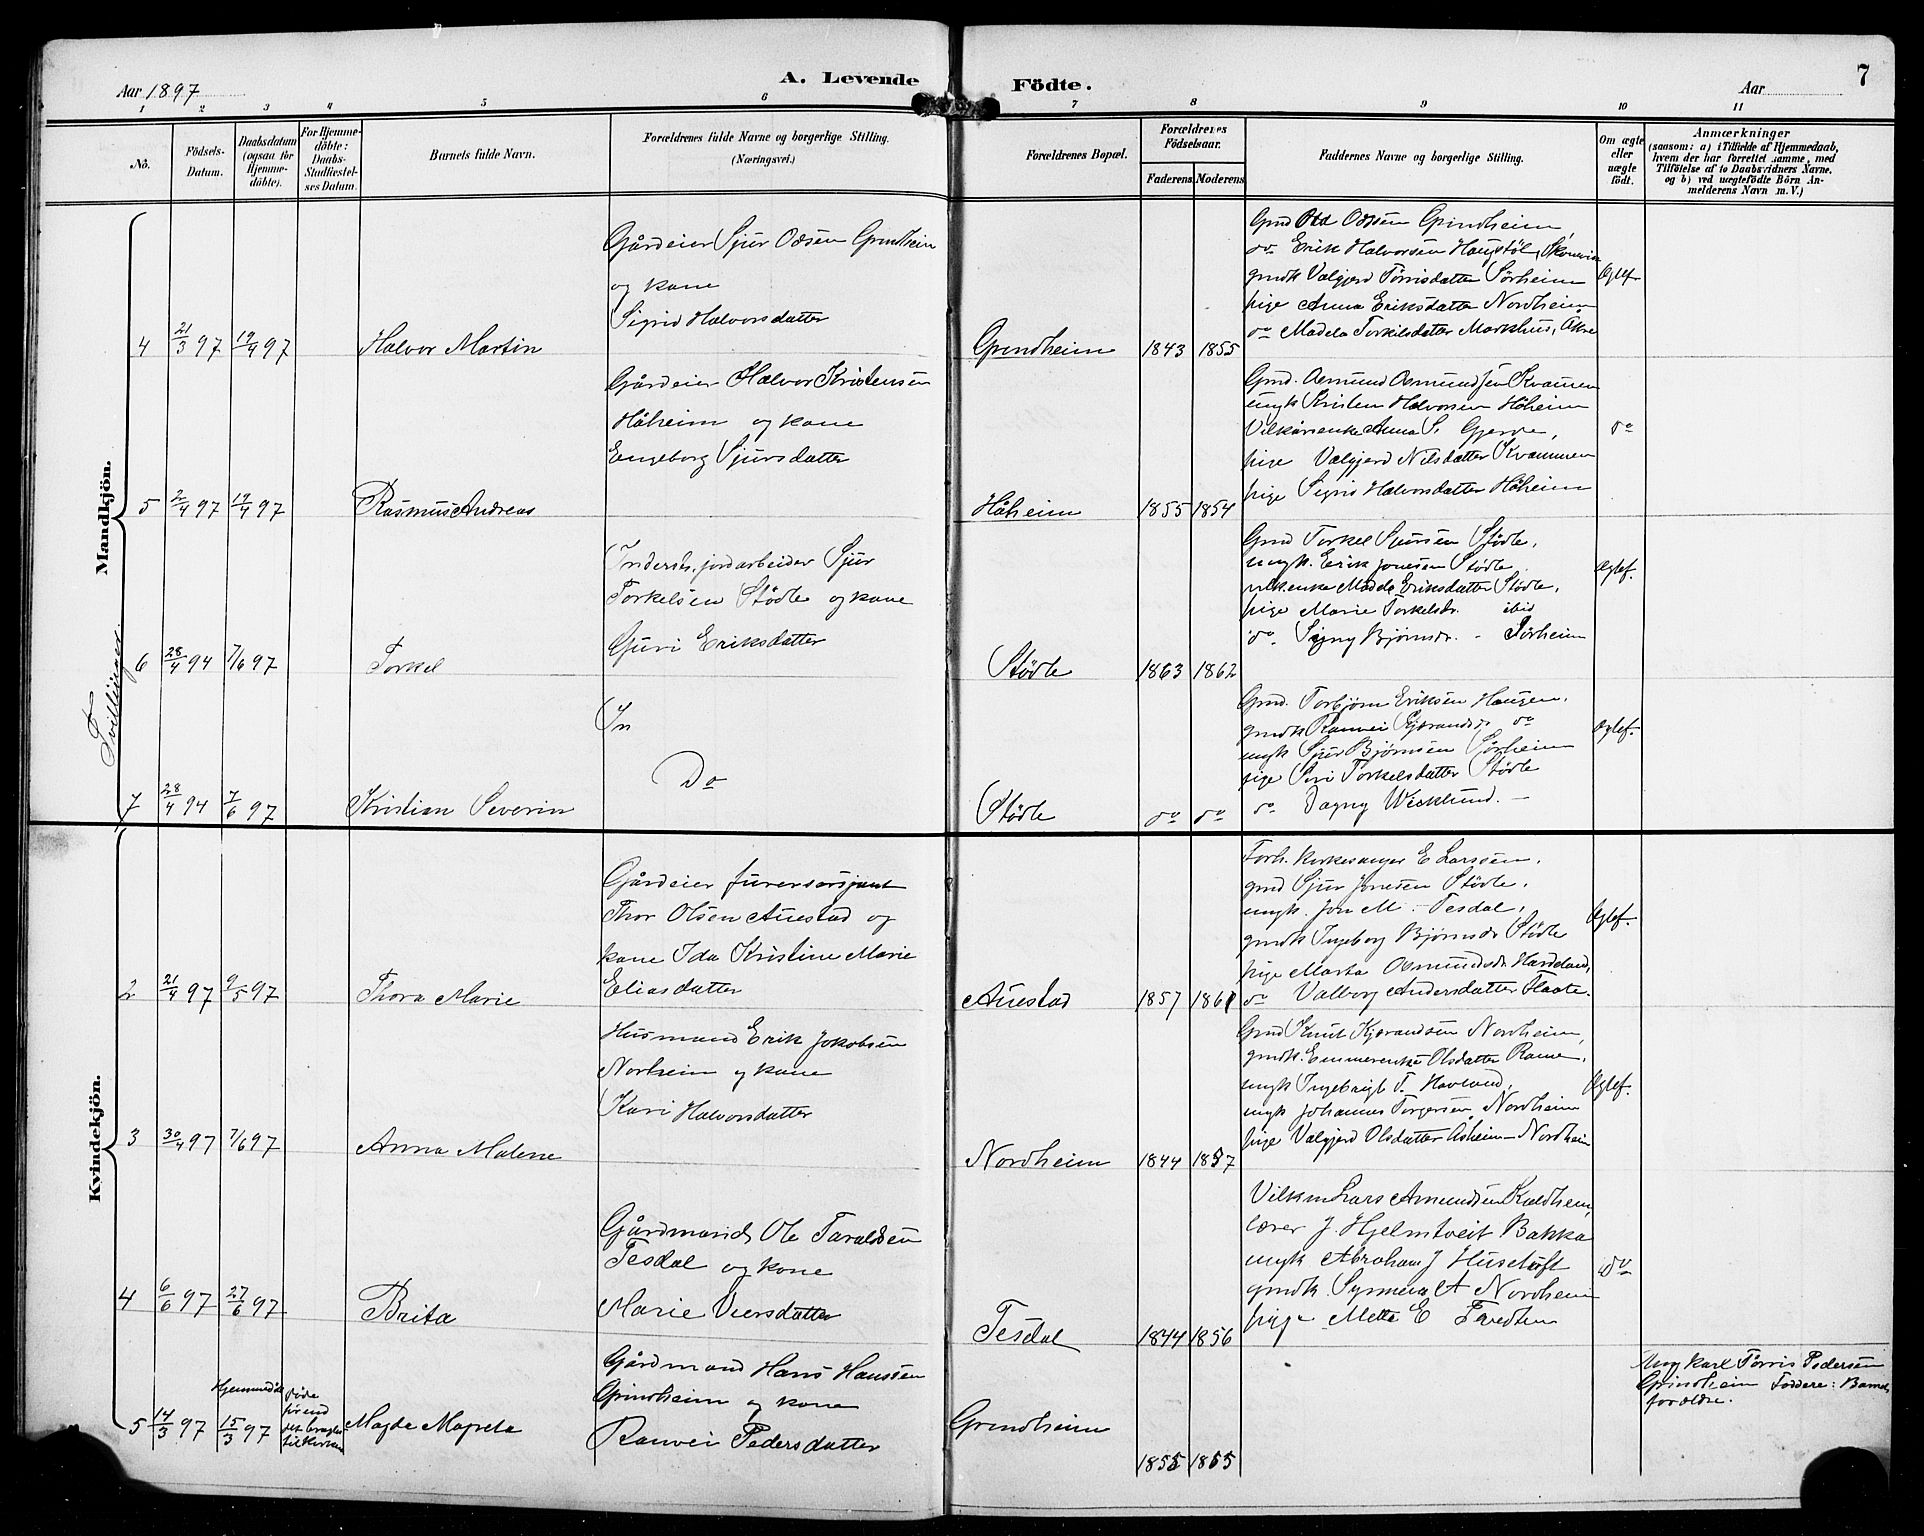 A. Levende
Födte.
7
Aar 1897
Aar
1 2 3 4 5 6 7 8 9 10 11
No.
Födsels-
Datum.
Daabsdatum
(ogsaa for
Hjemme-
döbte).
For Hjemme-
döbte:
Daabs-
Stadfæstel-
ses Datum.
Barnets fulde Navn.
Forældrenes fulde Navne og borgerlige Stilling.
(Næringsvei.)
Forældrenes Bopæl.
Forældrenes
Födselsaar.
Faderens Moderens
Faddernes Navne og borgerlige Stilling.
Om ægte
eller
uægte
födt.
Anmærkninger
(saasom: a) i Tilfælde af Hjemmedaab,
hvem der har forrettet samme, med
Tilföielse af to Daabsvidners Navne.
og b) ved uægtefödte Börn An-
melderens Navn m. V.)
Mandkjön.
4 21/3 97 19/4 97 Halvor Martin
Gårdeier Sjur Odsen Grindheim
og kone
Sigrid Halvorsdatter
Grindheim 1843 1855
Gmd Odd Odssen Grindheim,
do Erik Halvorsen Haugstøl, Skonevik
gmdk Valgjerd Tørrisdatter Sørheim
pige Anna Eriksdatter Nordheim
do Madela Torkilsdatter Markhus, Åkre
Ægtef
5 2/4 97 19/4 97 Rasmus Andreas
Gårdeier Halvor Kristensen
Håheim og kone
Engeborg Sjursdatter
Håheim 1855 1854
Gmd. Asmund Osmundsen Kvamen
ungk Kristen Halvorsen Håheim
Vilkårsenke Anna S. Gjerde,
pige Valgjerd Nilsdatter Kvammen
pige Sigrid Halvorsdatter Håheim
do
Tvillinger.
6 28/4 94 7/6 97 Torkel
Inderst. jordarbeider Sjur
Torkelsen Stødle og kone
Guri Eriksdatter
Stødle 1863 1862
Gmd Torkel Sjursen Stødle,
ungk. Erik Jonesen Stødle
vilkenke Madela Eriksdatter Stødle,
pige Marie Torkelsdr. ibid
do Signy Bjørnsdr. - Sørheim
Ægtef.
7 28/4 94 7/6 97 Kristian Severin
In
Do
Stødle do do
Gmd. Torbjørn Eriksen Haugen,
gmdk Ranvei Kjørandsdr do
ungk Sjur Bjørnsen Sørheim
pige Siri Torkelsdatter Stødle
do Dagny Wicklund. -
Ægtef.
Kvindekjön.
2 21/4 97 9/5 97 Thora Marie
Gårdeier furersersjant
Thor Olsen Auestad og
kone Ida Kristine Marie
Eliasdatter
Auestad 1857 1861
Forh. kirkesanger E Larssen,
gmd Sjur Jonesen Stødle,
ungk. Jon M. Tesdal,
gmdk Ingeborg Bjørnsdr Stødle
pige Marta Osmundsdr Hardeland,
do Valborg Andersdatter Flaate.
Ægtef.
3 30/4 97 7/6 97 Anna Malene
Husmand Erik Jokobsen
Norheim og kone
Kari Halvorsdatter
Nordheim 1844 1857
Gmd Knut Kjørandsen Nordheim,
gmdk. Emmerenke Olsdatter Rame,
ungk Ingebrigt T. Havland,
ungk Johannes Torgersen Nordheim
pige Valgjerd Olsdatter Åsheim - Nordheim
Ægtef.
4 6/6 97 27/6 97 Brita
Gårdmand Ole Taraldsen
Tesdal og kone
Marie Viersdatter
Tesdal 1844 1856
Vilkm Lars Amundsen Kaldheim,
lærer J. Hjelmtveit Bakka
ungk Abraham J Husetuft
gmdk. Synneva A Nordheim
pige Mette E
do
5 14/3 97 Hjemmedåb 15/3 97
Døde
førend
det bragtes
til kirken
Magde Magreta
Gårdmand Hans Hanssen
Grindheim og kone
Ranvei Pedersdatter
Grindheim
1855 1855
Ungkarl Tørris Pedersen
Grindheim Faddere: Barnets
forældre.